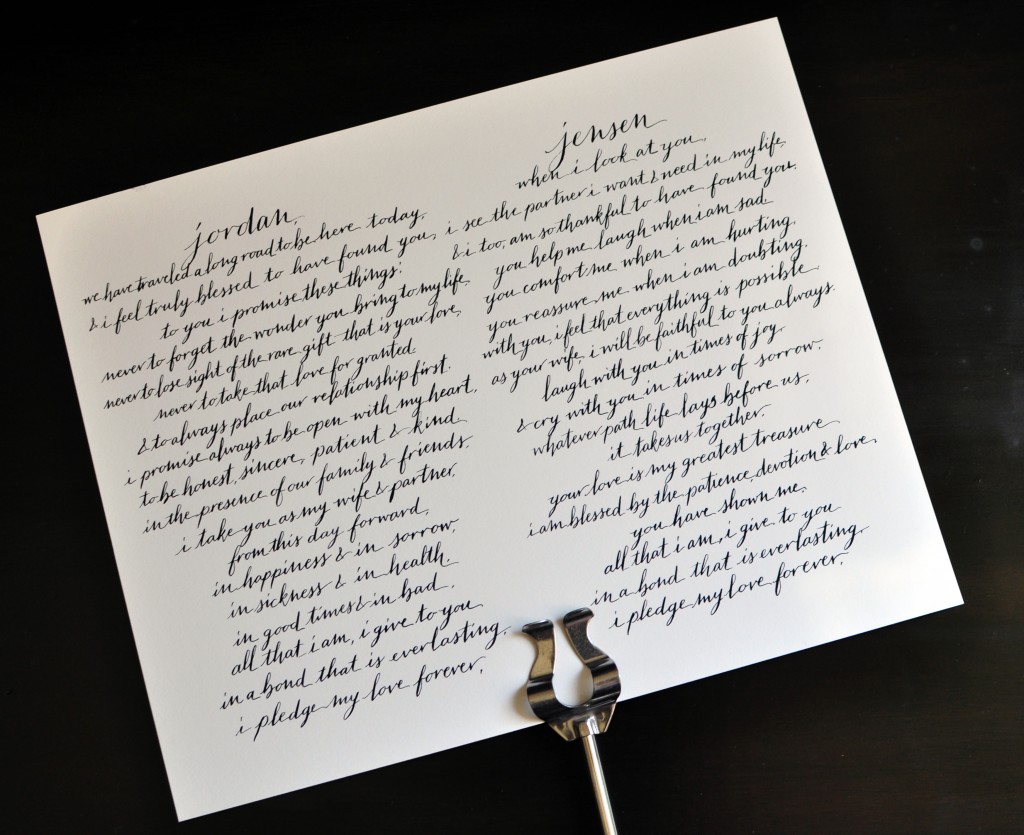 jordan,
we have traveled a long road to be here today,
& i feel truly blessed to have found you,
to you i promise these things:
never to forget the wonder you bring to my life,
never to lose sight of the rare gift that is your love,
never to take that love for granted
& to always place our relationship first.
i promise always to be open with my heart,
to be honest, sincere, patient & kind.
in the presence of our family & friends.
i take you as my wife & partner,
from this day forward,
in happiness & in sorrow,
in sickness & in health
in good times & in bad.
all that i am, i give to you
in a bond that is everlasting.
i pledge my love forever.
jensen,
when i look at you,
i see the partner i want & need in my life,
& i too, am so thankful to have found you.
you help me laugh when i am sad.
you comfort me when i am hurting.
you reassure me when i am doubting.
with you, i feel that everything is possible
as your wife, i will be faithful to you always.
laugh with you in times of joy
& cry with you in times of sorrow.
whatever path life lays before us,
it takes us together.
your love is my greatest treasure
i am blessed by the patience, devotion & love,
you have shown me,
all that i am, i give to you
in a bond that is everlasting.
i pledge my love forever.